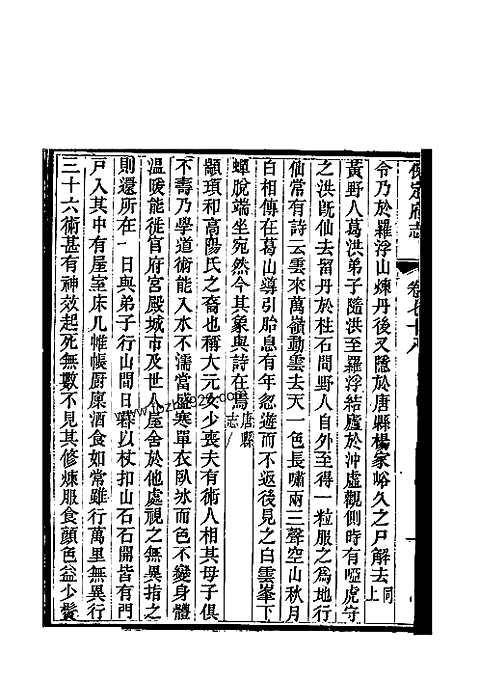 保定府志 卷七十八
令乃於羅浮山煉丹後又隱於唐縣楊家峪久之尸解去同上
黃野人葛洪弟子隨洪至羅浮結廬於沖虛觀側時有啞虎守
之洪旣仙去留丹於柱石間野人自外至得一粒服之為地行
仙常有詩云雲來萬嶺動雲去天一色長嘯兩三聲空山秋月
白相傳在葛山導引胎息有年忽遊而不返後見之白雲峯下
蟬脫端坐宛然今其象與詩在焉唐縣志
顓頊和高陽氏之裔也稱大元女少喪夫有術人相其母子俱
不壽乃學道術能入水不濡當盛寒單衣臥冰而色不變身體
溫暖能徙官府宮殿城市及世人屋舍於他處視之無異指之
則還所在一日與弟子行山間日暮以杖扣山石石開皆有門
戸入其中有屋室床几帷帳廚廩酒食如常雖行萬里無異行
三十六術甚有神效起死無數不見其修煉服食顏色益少鬢